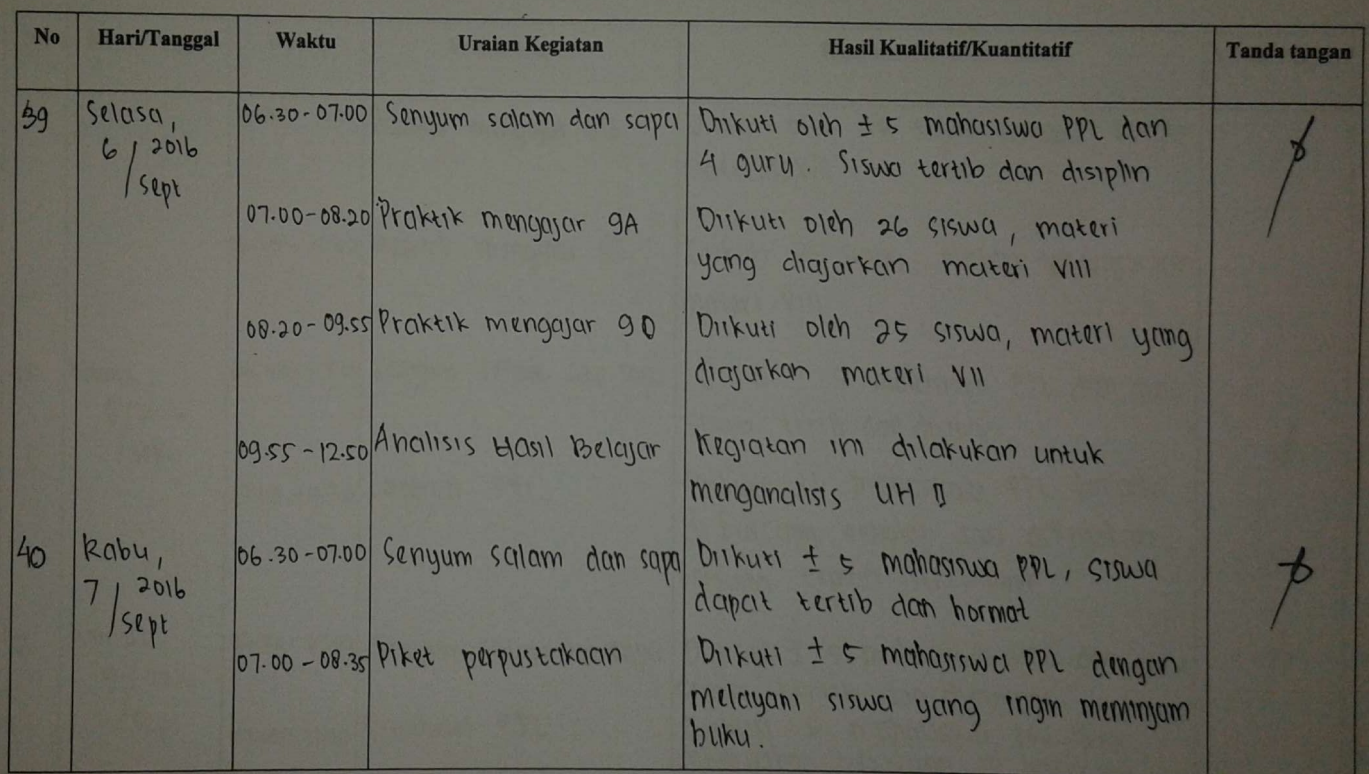 No Hari/Tanggal Waktu Uraian Kegiatan Hasil Kualitatif/Kuantitatif Tanda tangan
39 Selasa, 06.30-07.00 Senyum salam dan sapa Diikuti oleh ± 5 mahasiswa PPL dan
6/2016 4 guru. Siswa tertib dan disiplin
sept
07.00-08.20 Praktik mengajar 9A Diikuti oleh 26 siswa, materi
yang diajarkan materi VIII
08.20-09.55 Praktik mengajar 9D Diikuti oleh 25 siswa, materi yang
diajarkan materi VII
09.55-12.50 Analisis Hasil Belajar Kegiatan ini dilakukan untuk
menganalisis UH II
40 Rabu, 06.30-07.00 Senyum salam dan sapa Diikuti ± 5 mahasiswa PPL, siswa
7/2016 dapat tertib dan hormat
sept
07.00-08.35 Piket perpustakaan Diikuti ± 5 mahasiswa PPL dengan
melayani siswa yang ingin meminjam
buku.